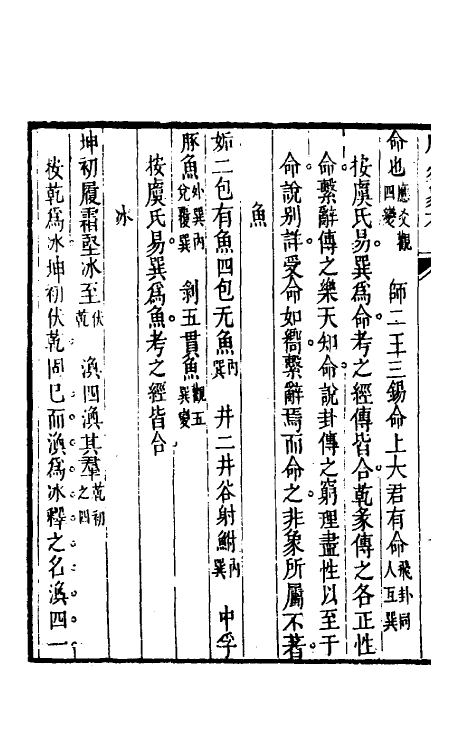 命也應爻觀四變　師二王三錫命上大君有命飛卦同人互巽
按虞氏易巽爲命考之經傳皆合乾彖傳之各正性
命繫辭傳之樂天知命說卦傳之窮理盡性以至于
命說别詳受命如嚮繫辭焉而命之非象所屬不著
魚
姤二包有魚四包无魚内巽　井二井谷射鮒内巽　中孚
豚魚外巽内兌覆巽　剥五貫魚觀五巽變
按虞氏易巽爲魚考之經皆合
冰
坤初履霜堅冰至伏乾　渙四渙其羣乾初之四
按乾爲冰坤初伏乾固已而渙爲冰釋之名渙四一